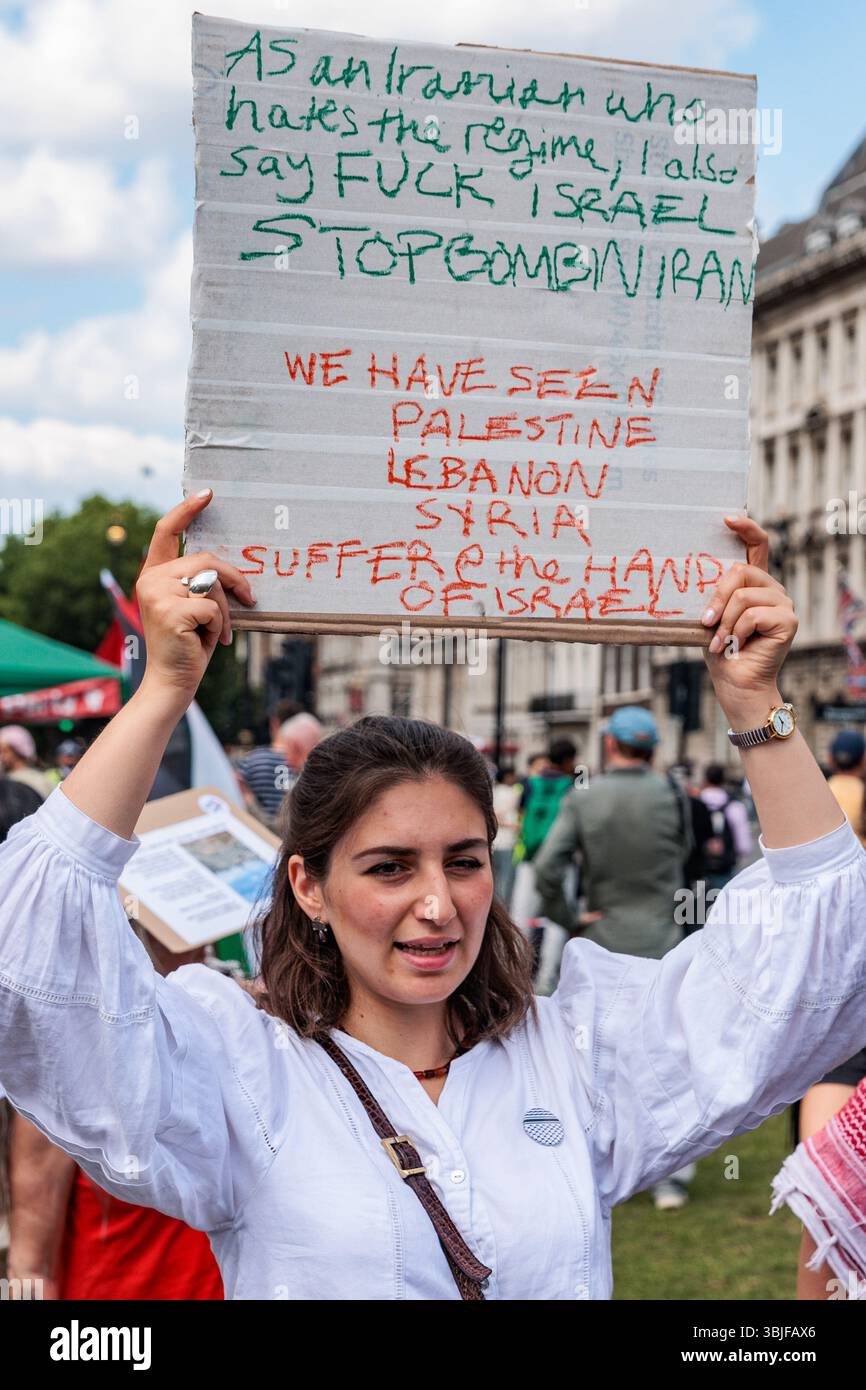 As an Iranian who
hates the regime, I also
say FUCK ISRAEL
STOP BOMBIN IRAN
WE HAVE SEEN
PALESTINE
LEBANON
SYRIA
SUFFER @ the HAND
OF ISRAEL
alamy
Image ID: 3BJFAX6
www.alamy.com